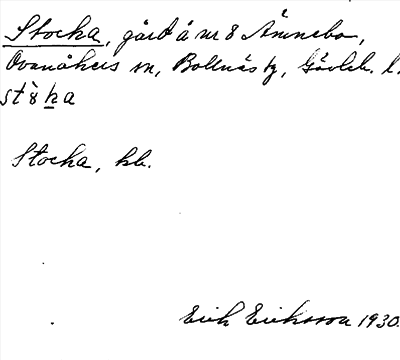 Stocka, gård å nr 8 Ämnebo,
Ovanåkers sn, Bollnäs tg, Gävleb. l.
stòka
Stocka, kb.
Erik Eriksson 1930.